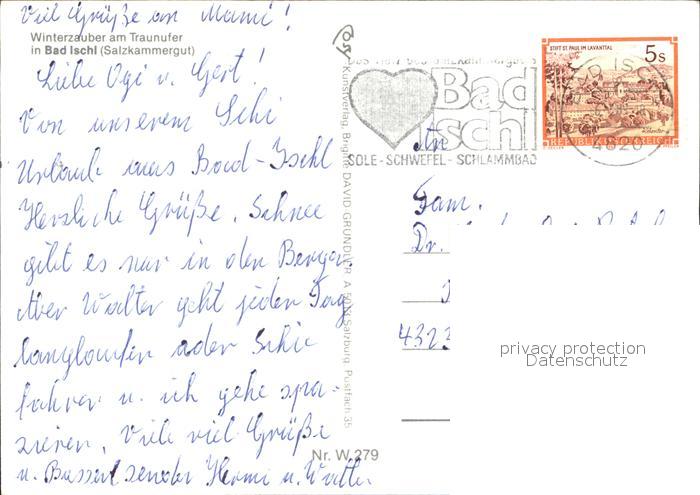 Viel Grüße an Mami!
Winterzauber am Traunufer
in Bad Ischl (Salzkammergut)
Liebe Ogi u. Gert!
Von unserem Schi
Urlaub aus Bad-Ischl
Herzliche Grüße. Schnee
gibt es nur in den Bergen.
Aber Walter geht jeden Tag
langlaufen oder Schi
fahren u. ich gehe spa-
zieren. Viele viel Grüße
u. Busserl senden Hermi u. Walter
Nr. W 279
Kunstverlag, Brigitte DAVID GRÜNDLER A Salzburg, Postfach 35
Bad
Ischl
SOLE-SCHWEFEL-SCHLAMMBAD
STIFT ST. PAUL IM LAVANTTAL
5s
REPUBLIK ÖSTERREICH
BAD ISCHL
4820
An
Fam.
Dr.
4323
privacy protection
Datenschutz